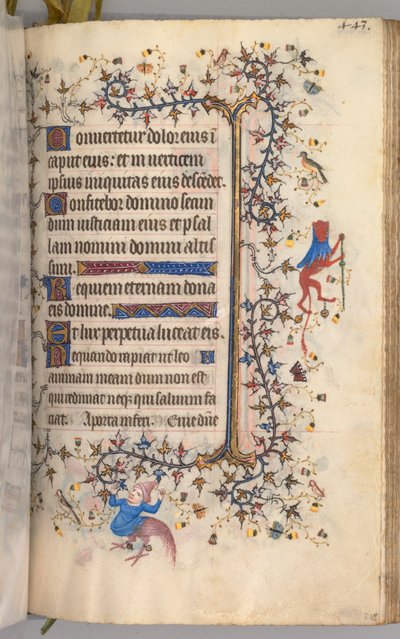 447.
Convertetur dolor eius ī
caput eius: et in verticem
ipsius iniquitas eius descēdet.
Confitebor domino secun
dum iusticiam eius et psal
lam nomini domini altis
simi.
Requiem eternam dona
eis domine.
Et lux perpetua luceat eis.
Nequando rapiat ut leo
animam meam dum non est
qui redimat neq; qui saluum fa
ciat. A porta inferi. Erue dn̄e